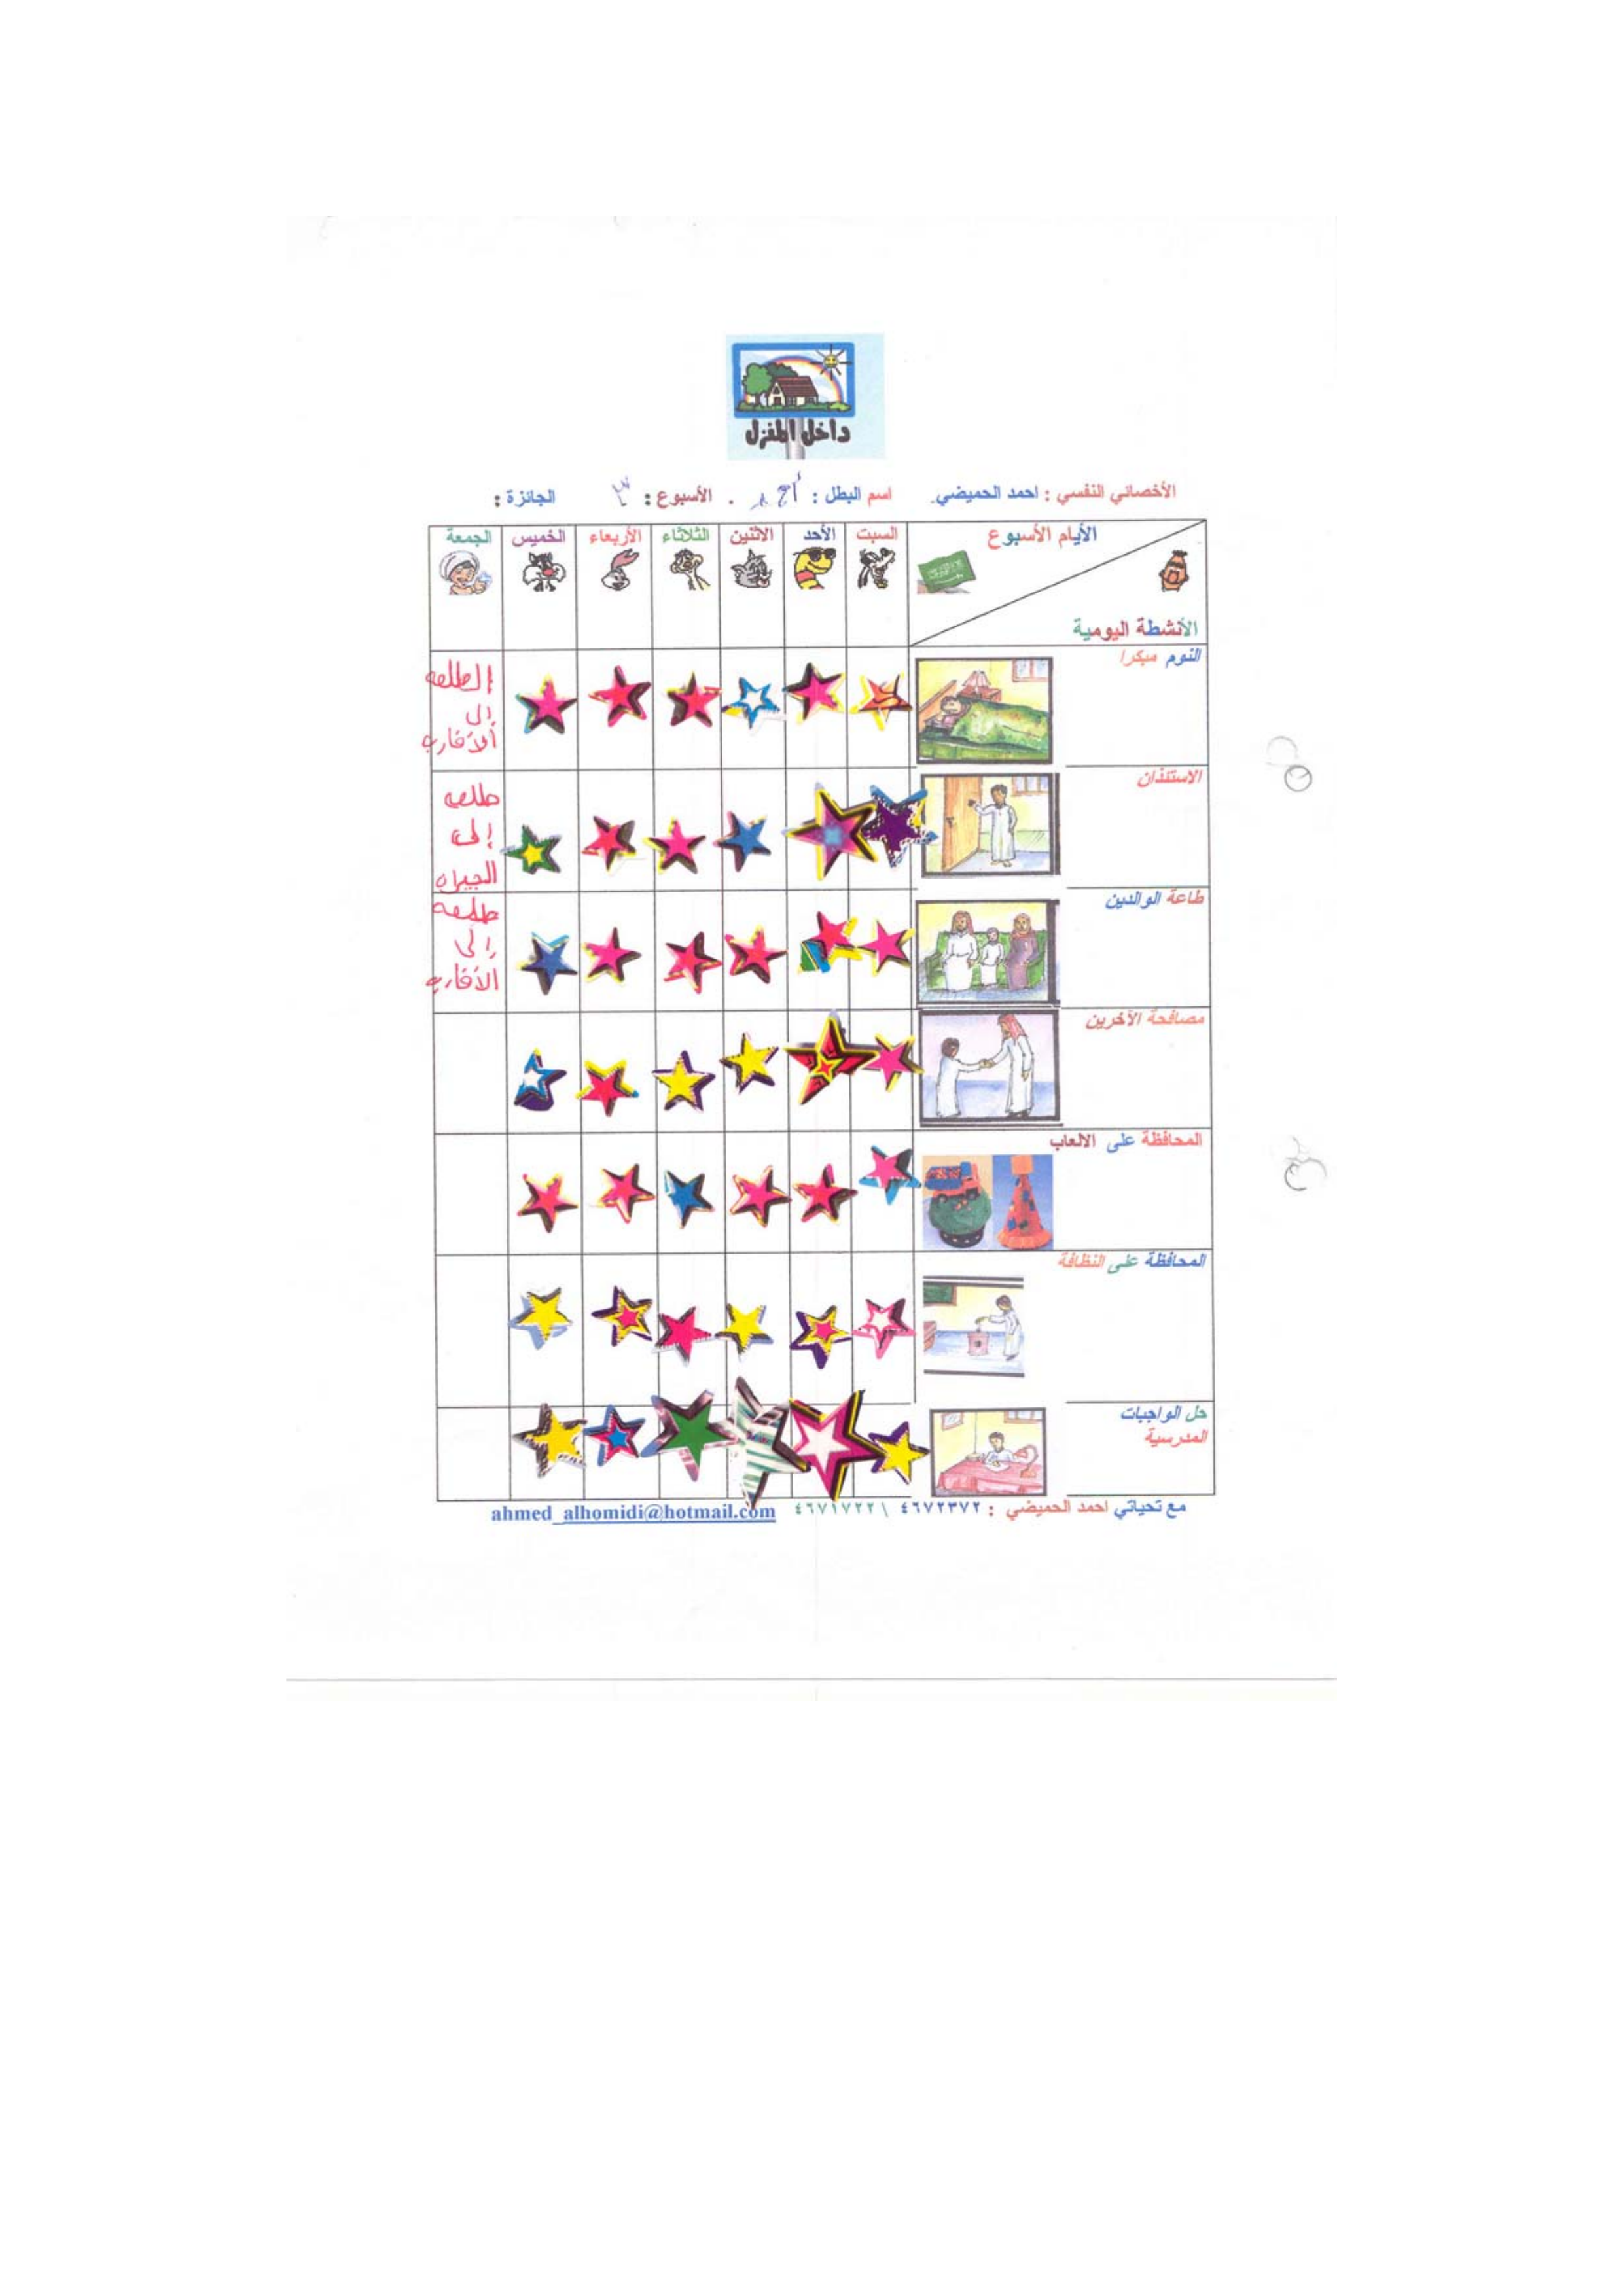 داخل المنزل
الأخصائي النفسي : احمد الحميضي. اسم البطل : أحمد . الأسبوع : ٣ الجائزة :
الأيام الأسبوع السبت الأحد الاثنين الثلاثاء الأربعاء الخميس الجمعة
الأنشطة اليومية
النوم مبكرا
الطلعه
إلى
الأقارب
الاستئذان
طلعه
إلى
الجيران
طاعة الوالدين
طلعه
إلى
الأقارب
مصافحة الآخرين
المحافظة على الالعاب
المحافظة على النظافة
حل الواجبات
المدرسية
مع تحياتي احمد الحميضي : ٤٦٧٢٣٧٢ \ ٤٦٧١٧٢٢ ahmed_alhomidi@hotmail.com